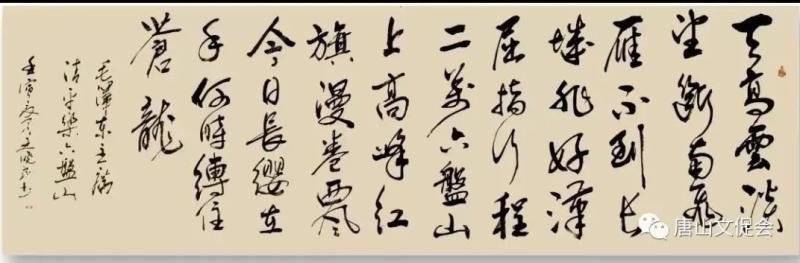 天高雲淡
望斷南飛
雁不到长
城非好漢
屈指行程
二萬六盤山
上高峰红
旗漫卷西風
今日長纓在
手何時縛住
蒼龍
毛澤東主席
清平樂六盤山
壬寅
唐山文促会